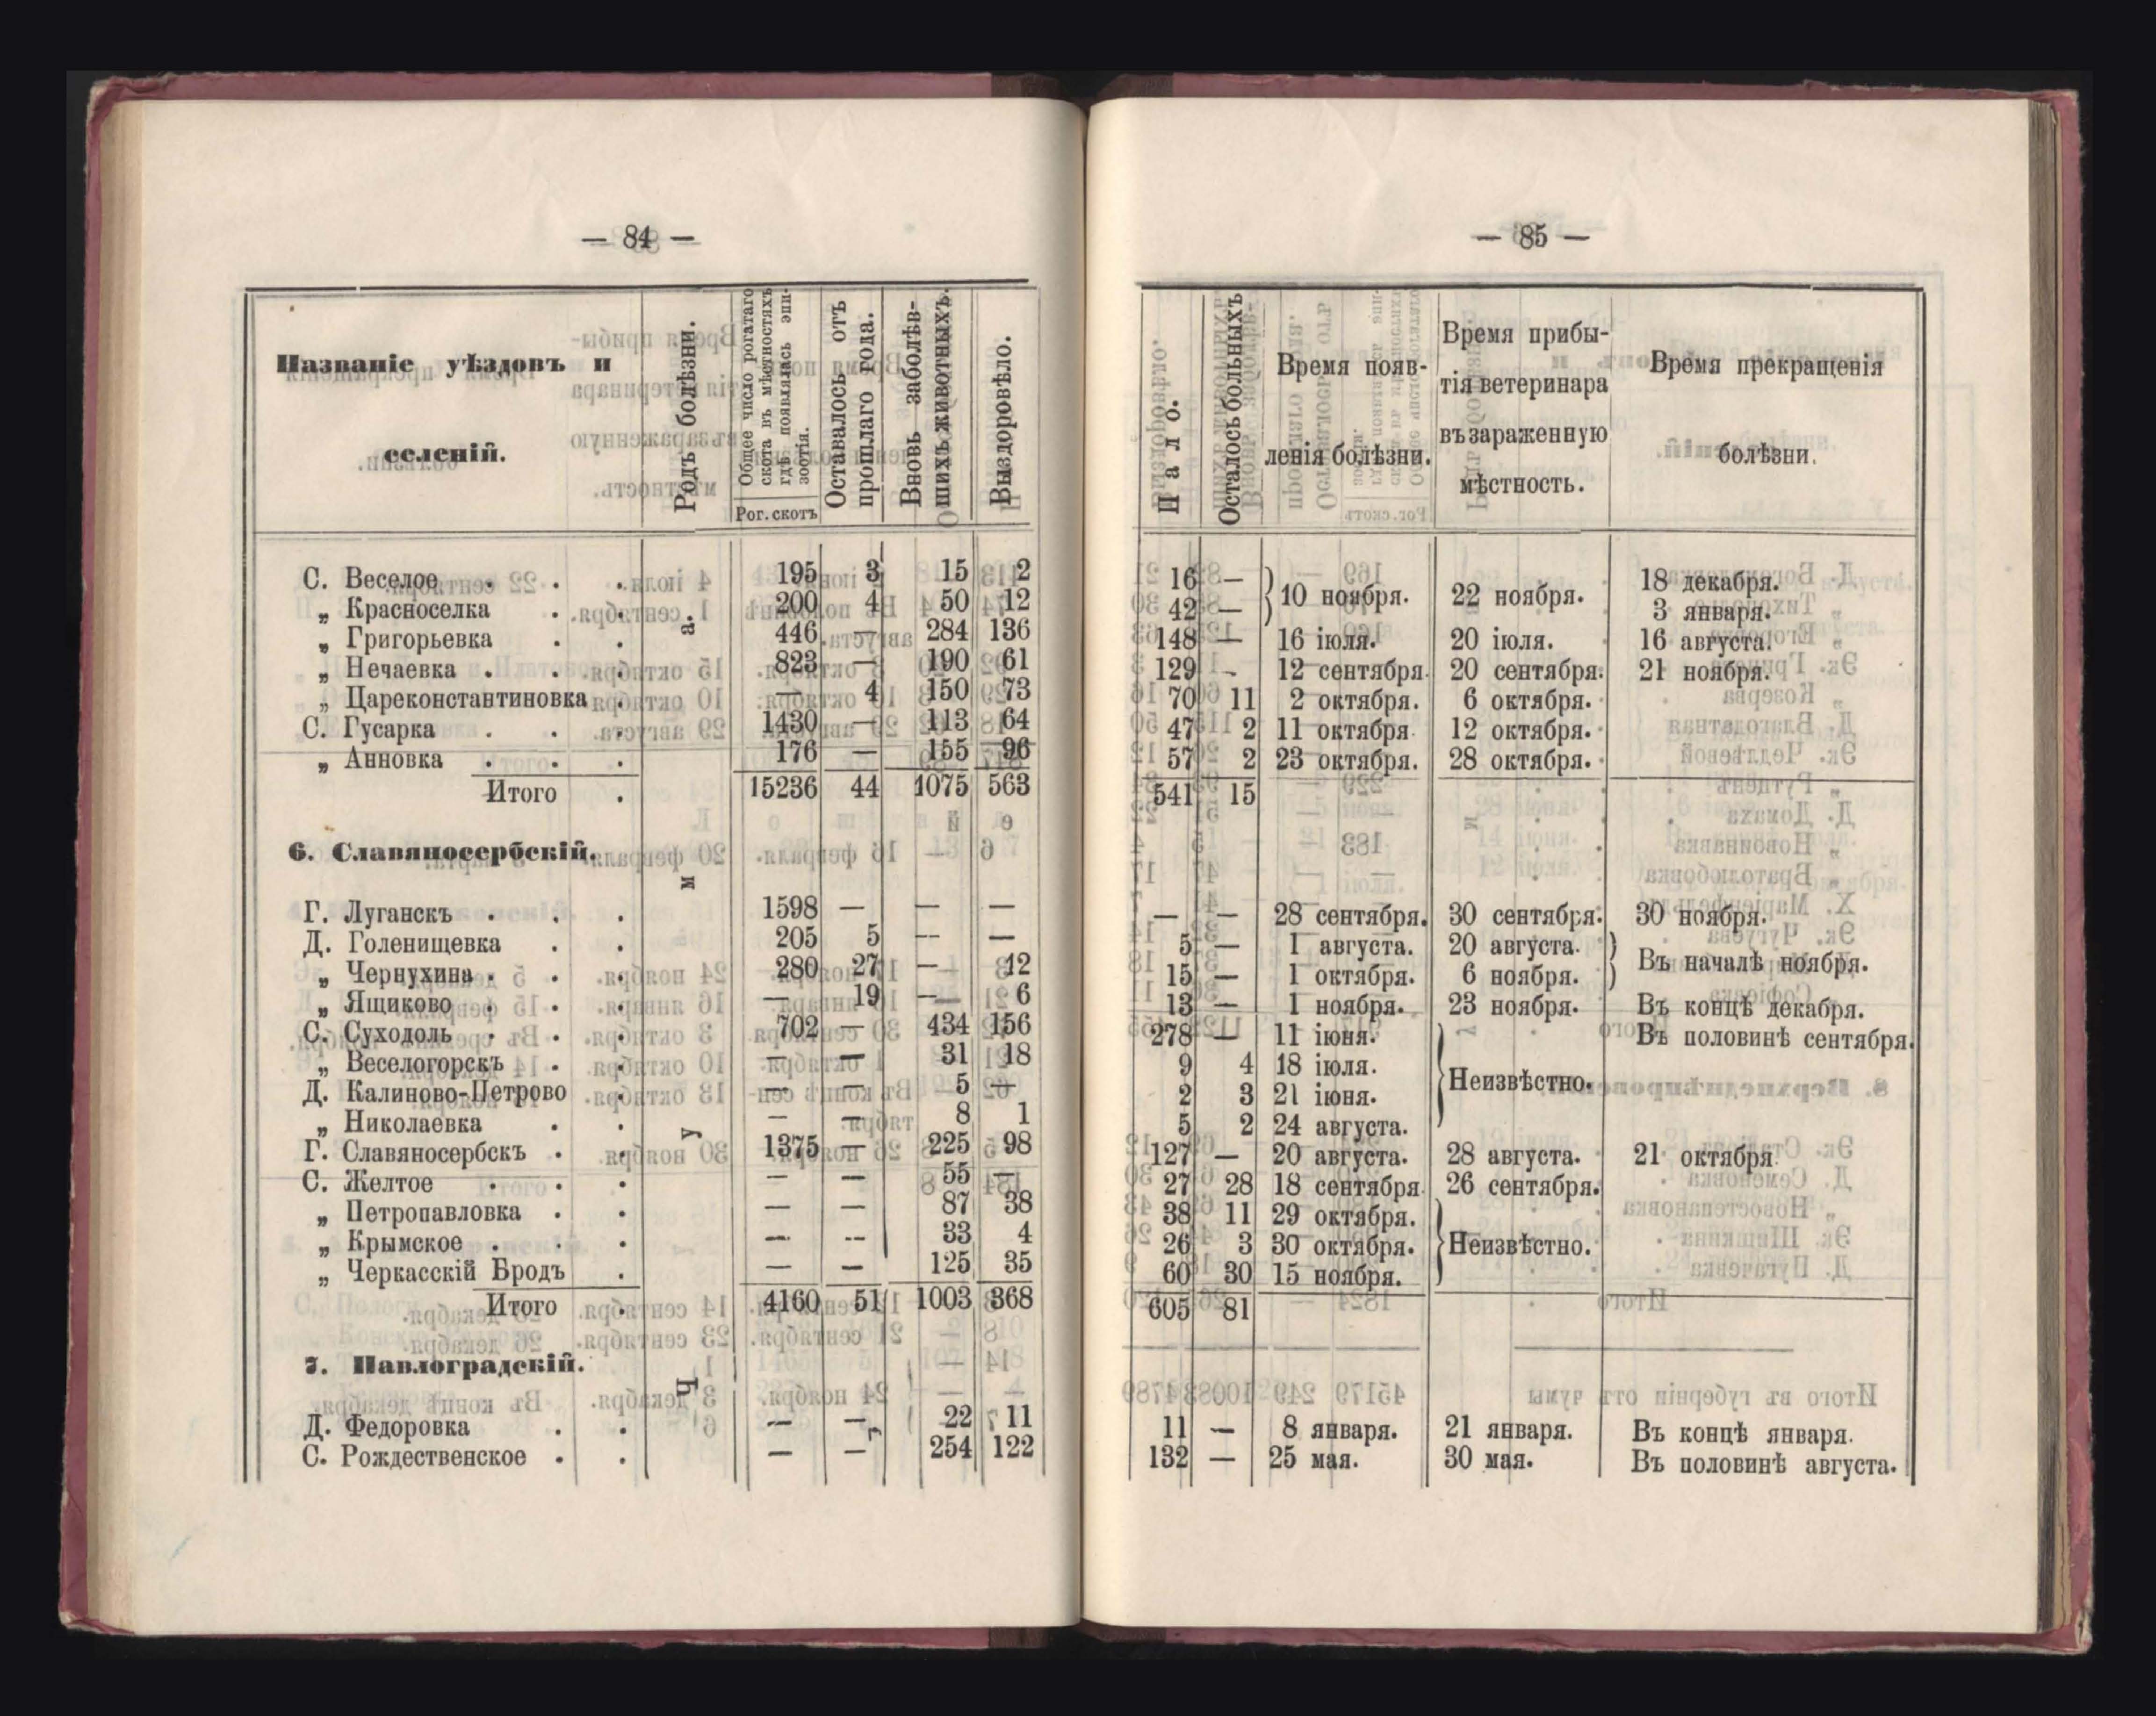 — 84 —
Названіе уѣздовъ и
селеній.
Родъ болѣзни.
Общее число рогатаго
скота въ мѣстностяхъ
гдѣ появлялась эпи-
зоотія.
Рог. скотъ
Оставалось отъ
прошлаго года.
Вновь заболѣв-
шихъ животныхъ.
Выздоровѣло.
Чума.
С. Веселое . . . 195 3 15 2
„ Красноселка . . 200 4 50 12
„ Григорьевка . . 446 — 284 136
„ Нечаевка . . . 823 — 190 61
„ Цареконстантиновка . — 4 150 73
С. Гусарка . . . 1430 — 113 64
„ Анновка . . . 176 — 155 96
Итого . 15236 44 1075 563
6. Славяносербскій.
Г. Луганскъ . . . 1598 — — —
Д. Голенищевка . . 205 5 — —
„ Чернухина . . . 280 27 — 12
„ Ящиково . . . — 19 — 6
С. Суходолъ . . . 702 — 434 156
„ Веселогорскъ . . — — 31 18
Д. Калиново-Петрово . — — 5 —
„ Николаевка . . — — 8 1
Г. Славяносербскъ . . 1375 — 225 98
С. Желтое . . . — — 55 —
„ Петропавловка . . — — 87 38
„ Крымское . . . — — 33 4
„ Черкасскій Бродъ . — — 125 35
Итого . 4160 51 1003 368
7. Павлоградскій.
Д. Федоровка . . — — 22 11
С. Рождественское . . — — 254 122
— 85 —
Пало.
Осталось больныхъ
Время появ-
ленія болѣзни.
Время прибы-
тія ветеринара
въ зараженную
мѣстность.
Время прекращенія
болѣзни.
16 — } 10 ноября. 22 ноября. 18 декабря.
42 — 3 января.
148 — 16 іюля. 20 іюля. 16 августа.
129 - 12 сентября. 20 сентября. 21 ноября.
70 11 2 октября. 6 октября.
47 2 11 октября 12 октября.
57 2 23 октября. 28 октября.
541 15
— — 28 сентября. 30 сентября. 30 ноября.
5 — 1 августа. 20 августа. } Въ началѣ ноября.
15 — 1 октября. 6 ноября.
13 — 1 ноября. 23 ноября. Въ концѣ декабря.
278 — 11 іюня. Въ половинѣ сентября.
9 4 18 іюля.
2 3 21 іюня. } Неизвѣстно.
5 2 24 августа.
127 — 20 августа. 28 августа. 21 октября
27 28 18 сентября 26 сентября.
38 11 29 октября.
26 3 30 октября. } Неизвѣстно.
60 30 15 ноября.
605 81
11 — 8 января. 21 января. Въ концѣ января.
132 — 25 мая. 30 мая. Въ половинѣ августа.